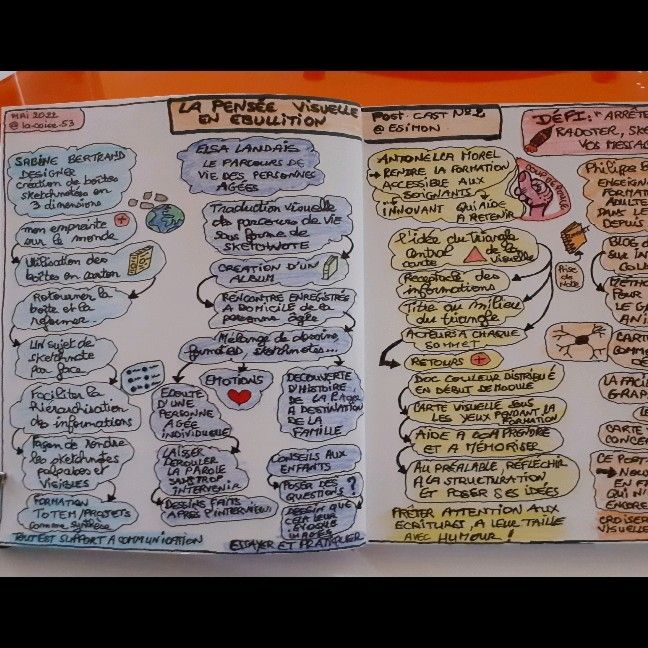 MAI 2022
@ la-coise-53
LA PENSÉE VISUELLE
EN EBULLITION
SABINE BERTRAND
DESIGNER
création de boîtes
sketchnotées en
3 dimensions
mon empreinte
sur le monde
Utilisation des
boîtes en carton
Retourner la
boîte et la
refermer
UN sujet de
sketchnote
par face
Faciliter la
hiérarchisation
des informations
Façon de rendre
les sketchnotes
palpables et
VISIBLES
FORMATION
TOTEM/PROJETS
comme synthèse
TOUT EST SUPPORT A COMMUNICATION
ELSA LANDAIS
LE PARCOURS DE
VIE DES PERSONNES
AGÉES
Traduction visuelle
des parcours de vie
sous forme de
SKETCHNOTE
CREATION D'UN
ALBUM
RENCONTRE ENREGISTRÉE
A DOMICILE de la
personne âgée
Mélange de dessins,
sketchnotes...
EMOTIONS
ECOUTE
D'UNE
PERSONNE
AGÉE
INDIVIDUELLE
LAISSER
DEROULER
LA PAROLE
SANS TROP
INTERVENIR
DESSINS FAITS
APRES L'INTERVIEW
DECOUVERTE
D'HISTOIRE
DE LA
A DESTINATION
DE LA
FAMILLE
CONSEILS AUX
ENFANTS
POSER DES
QUESTIONS ?
DESSIN QUE
CELA LEUR
EVOQUE
IMAGES
ESSAYER ET PRATIQUER
POST-CAST N°2
@ ESIMON
ANTONELLA MOREL
→ RENDRE LA FORMATION
ACCESSIBLE AUX
SOIGNANTS
INNOVANT QUI AIDE
A RETENIR
COUP DE POUCE
L'idée du triangle
central de la
carte visuelle
Réceptacle des
informations
Titre au milieu
du triangle
ACTEURS A CHAQUE
SOMMET
RETOURS
DOC COULEUR DISTRIBUÉ
EN DÉBUT DE MODULE
CARTE VISUELLE SOUS
LES YEUX PENDANT LA
FORMATION
AIDE A COMPRENDRE
ET A MÉMORISER
AU PRÉALABLE, RÉFLÉCHIR
A LA STRUCTURATION
ET POSER SES IDÉES
PRÊTER ATTENTION AUX
ECRITURES, A LEUR TAILLE
AVEC HUMOUR !
Prise
de
Note
DÉFI : "ARRÊTE
RADOTER, SKE
VOS MESSAG
Philippe B
ENSEIGN
FORMAT
ADULTE
DANS LE
DEPUIS
BLOG d
SUR IN
COLL
METHO
POUR
LE G
ANI
CART
COMME
DE
LA FACIL
GRAP
CARTE
CONCE
CE POST
→ NOUS
EN FA
QUI N'
ENCORE
CROISER
VISUELLE